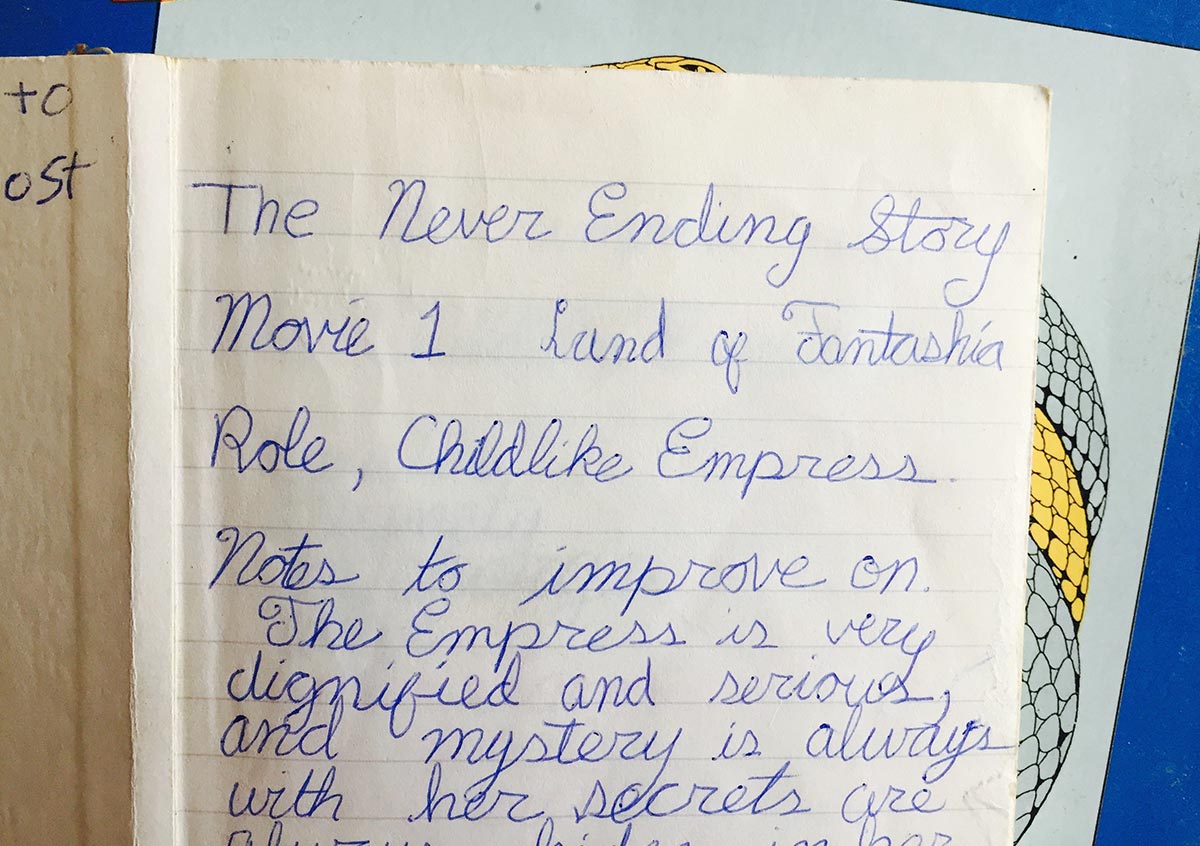 to
ost
The Never Ending Story
Movie 1 Land of Fantashia
Role, Childlike Empress.
Notes to improve on.
The Empress is very
dignified and serious,
and mystery is always
with her secrets are
in her